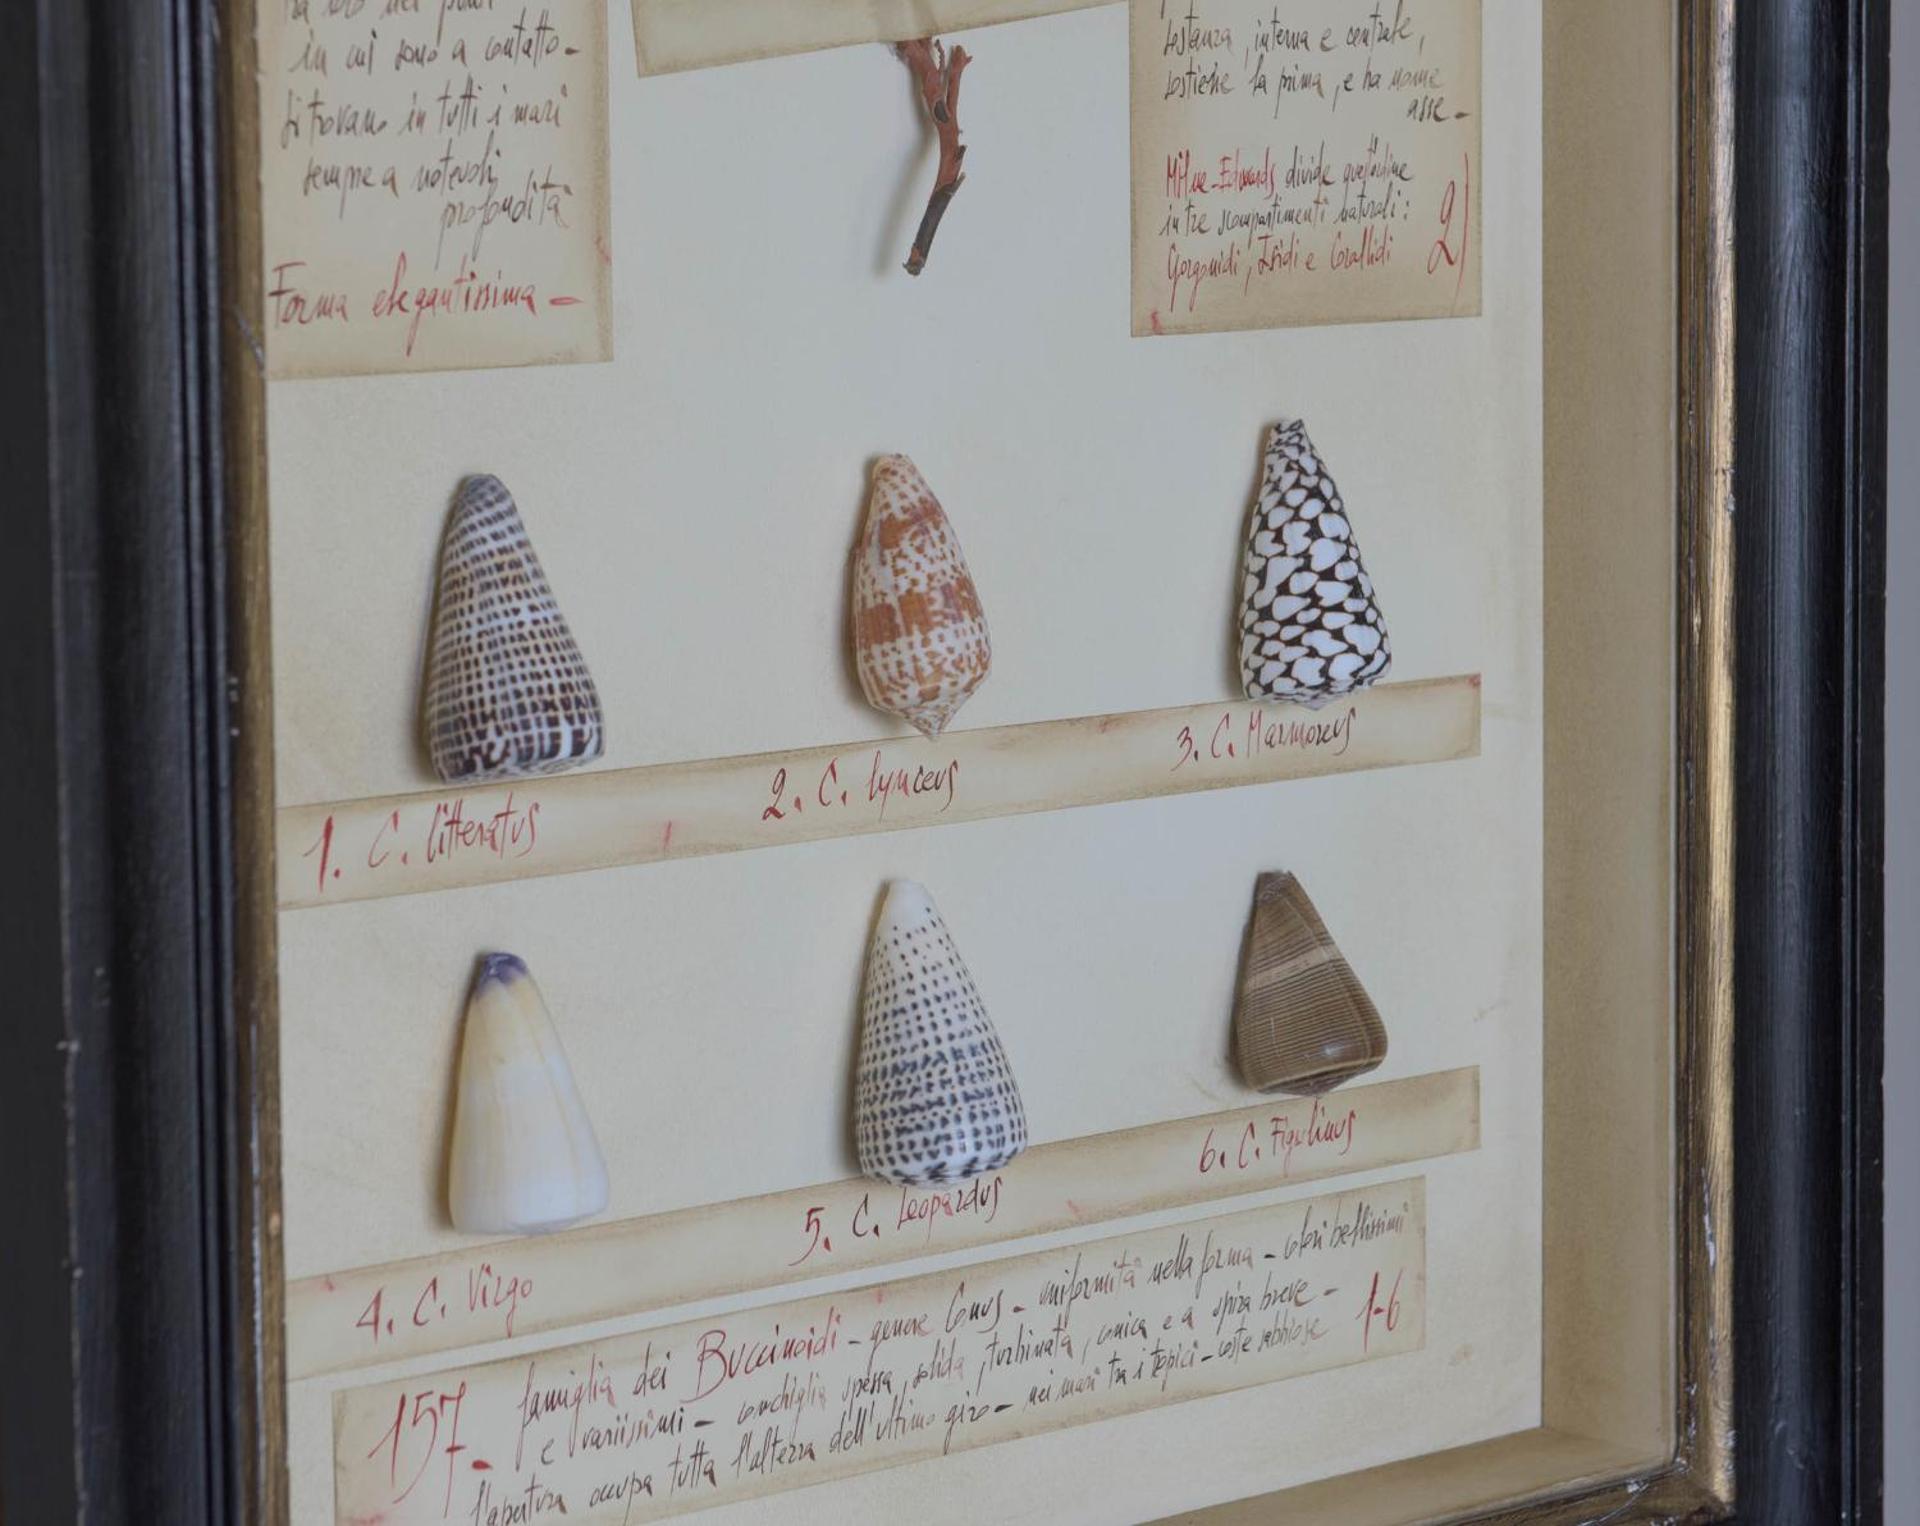 in cui sono a contatto -
si trovano in tutti i mari
sempre a notevoli
profondità
Forma elegantissima -
sostanza, interna e centrale,
sostiene la prima, e ha nome
asse -
Milne-Edwards divide quest'ordine
in tre scompartimenti naturali:
Gorgonidi, Isidi e Corallidi
2)
1. C. litteratus
2. C. lynceus
3. C. Marmoreus
4. C. Virgo
5. C. Leopardus
6. C. Figulinus
157 - famiglia dei Buccinoidi - genere Conus - uniformità nella forma - colori bellissimi
e variissimi - conchiglia spessa, solida, turbinata, conica e a spira breve -
l'apertura occupa tutta l'altezza dell'ultimo giro - nei mari tra i tropici - coste sabbiose
1-6